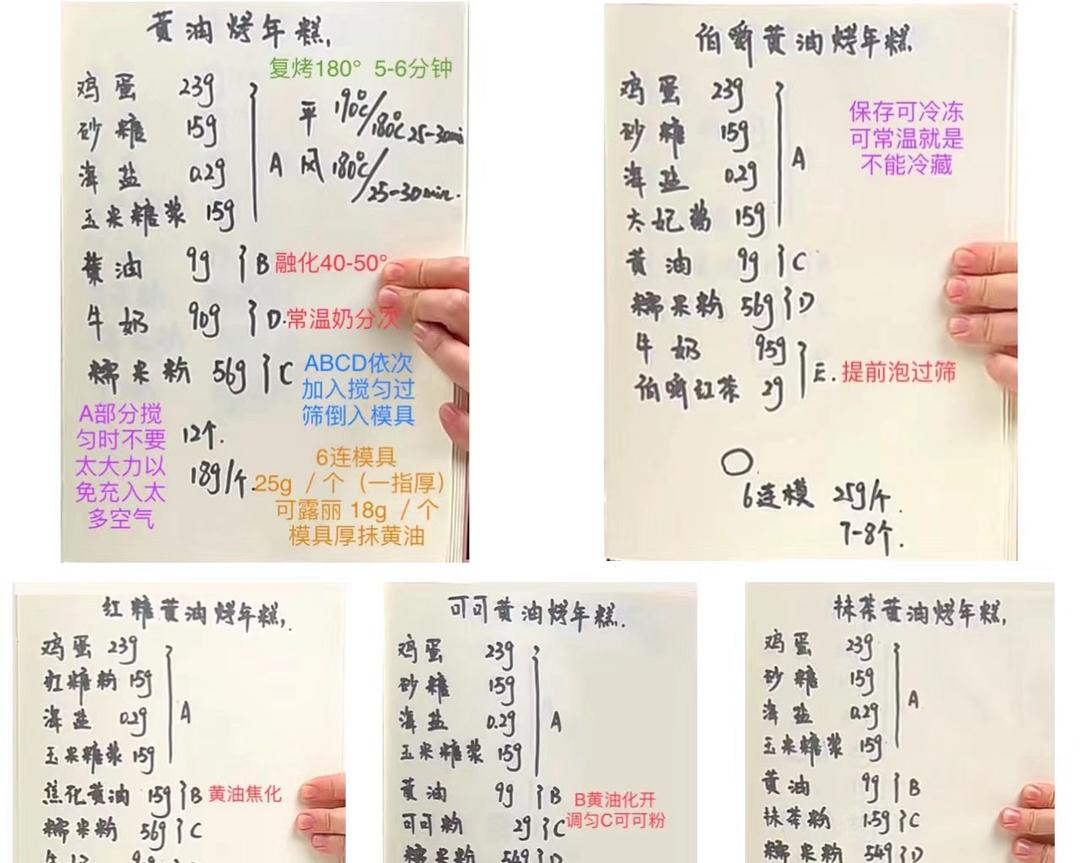 黄油烤年糕,
复烤180° 5-6分钟
鸡蛋 23g
砂糖 15g
海盐 0.2g
玉米糖浆 15g
A
平 190℃/180℃ 25-30min
风 180℃/25-30min.
黄油 9g }B 融化40-50°
牛奶 90g }D.常温奶分次
糯米粉 56g }C
ABCD依次
加入搅匀过
筛倒入模具
A部分搅
匀时不要
太大力以
免充入太
多空气
12个.
18g/个.
6连模具
25g /个（一指厚）
可露丽 18g /个
模具厚抹黄油
伯爵黄油烤年糕.
鸡蛋 23g
砂糖 15g
海盐 0.2g
太妃酱 15g
A
保存可冷冻
可常温就是
不能冷藏
黄油 9g }C
糯米粉 56g }D
牛奶 95g
伯爵红茶 2g
E.提前泡过筛
6连模 25g/个.
7-8个.
红糖黄油烤年糕,.
鸡蛋 23g
红糖粉 15g
海盐 0.2g
玉米糖浆 15g
A
焦化黄油 15g }B 黄油焦化
糯米粉 56g }C
可可黄油烤年糕.
鸡蛋 23g
砂糖 15g
海盐 0.2g
玉米糖浆 15g
A
黄油 9g }B
可可粉 2g }C
B黄油化开
调匀C可可粉
糯米粉 54g }D
抹茶黄油烤年糕,
鸡蛋 23g
砂糖 15g
海盐 0.2g
玉米糖浆 15g
A
黄油 9g }B
抹茶粉 1.5g }C
糯米粉 54g }D